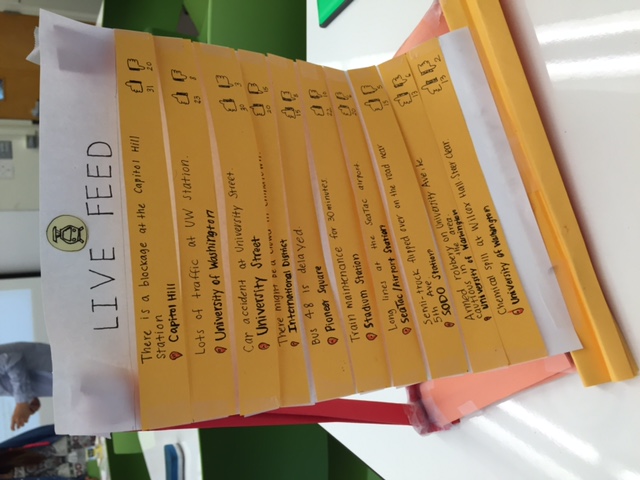 LIVE FEED
There is a blockage at the Capitol Hill
Station
31 20
Capitol Hill
Lots of traffic at UW station.
23 8
University of Washington
Car accident at University Street.
30 3
University Street
There might be a crowd in Chinatown.
20 16
International District
Bus 48 is delayed.
19 8
Pioneer Square
Train maintenance for 30 minutes.
22
Stadium Station
Long lines at the SeaTac airport
20
SeaTac/Airport Station
Semi-truck flipped over on the road near
5th Ave.
13
SODO Station
Armed robbery on University Ave. be
cautious in the area.
13 2
University of Washington
Chemical spill at Wilcox Hall Steer clear.
13 2
University of Washington